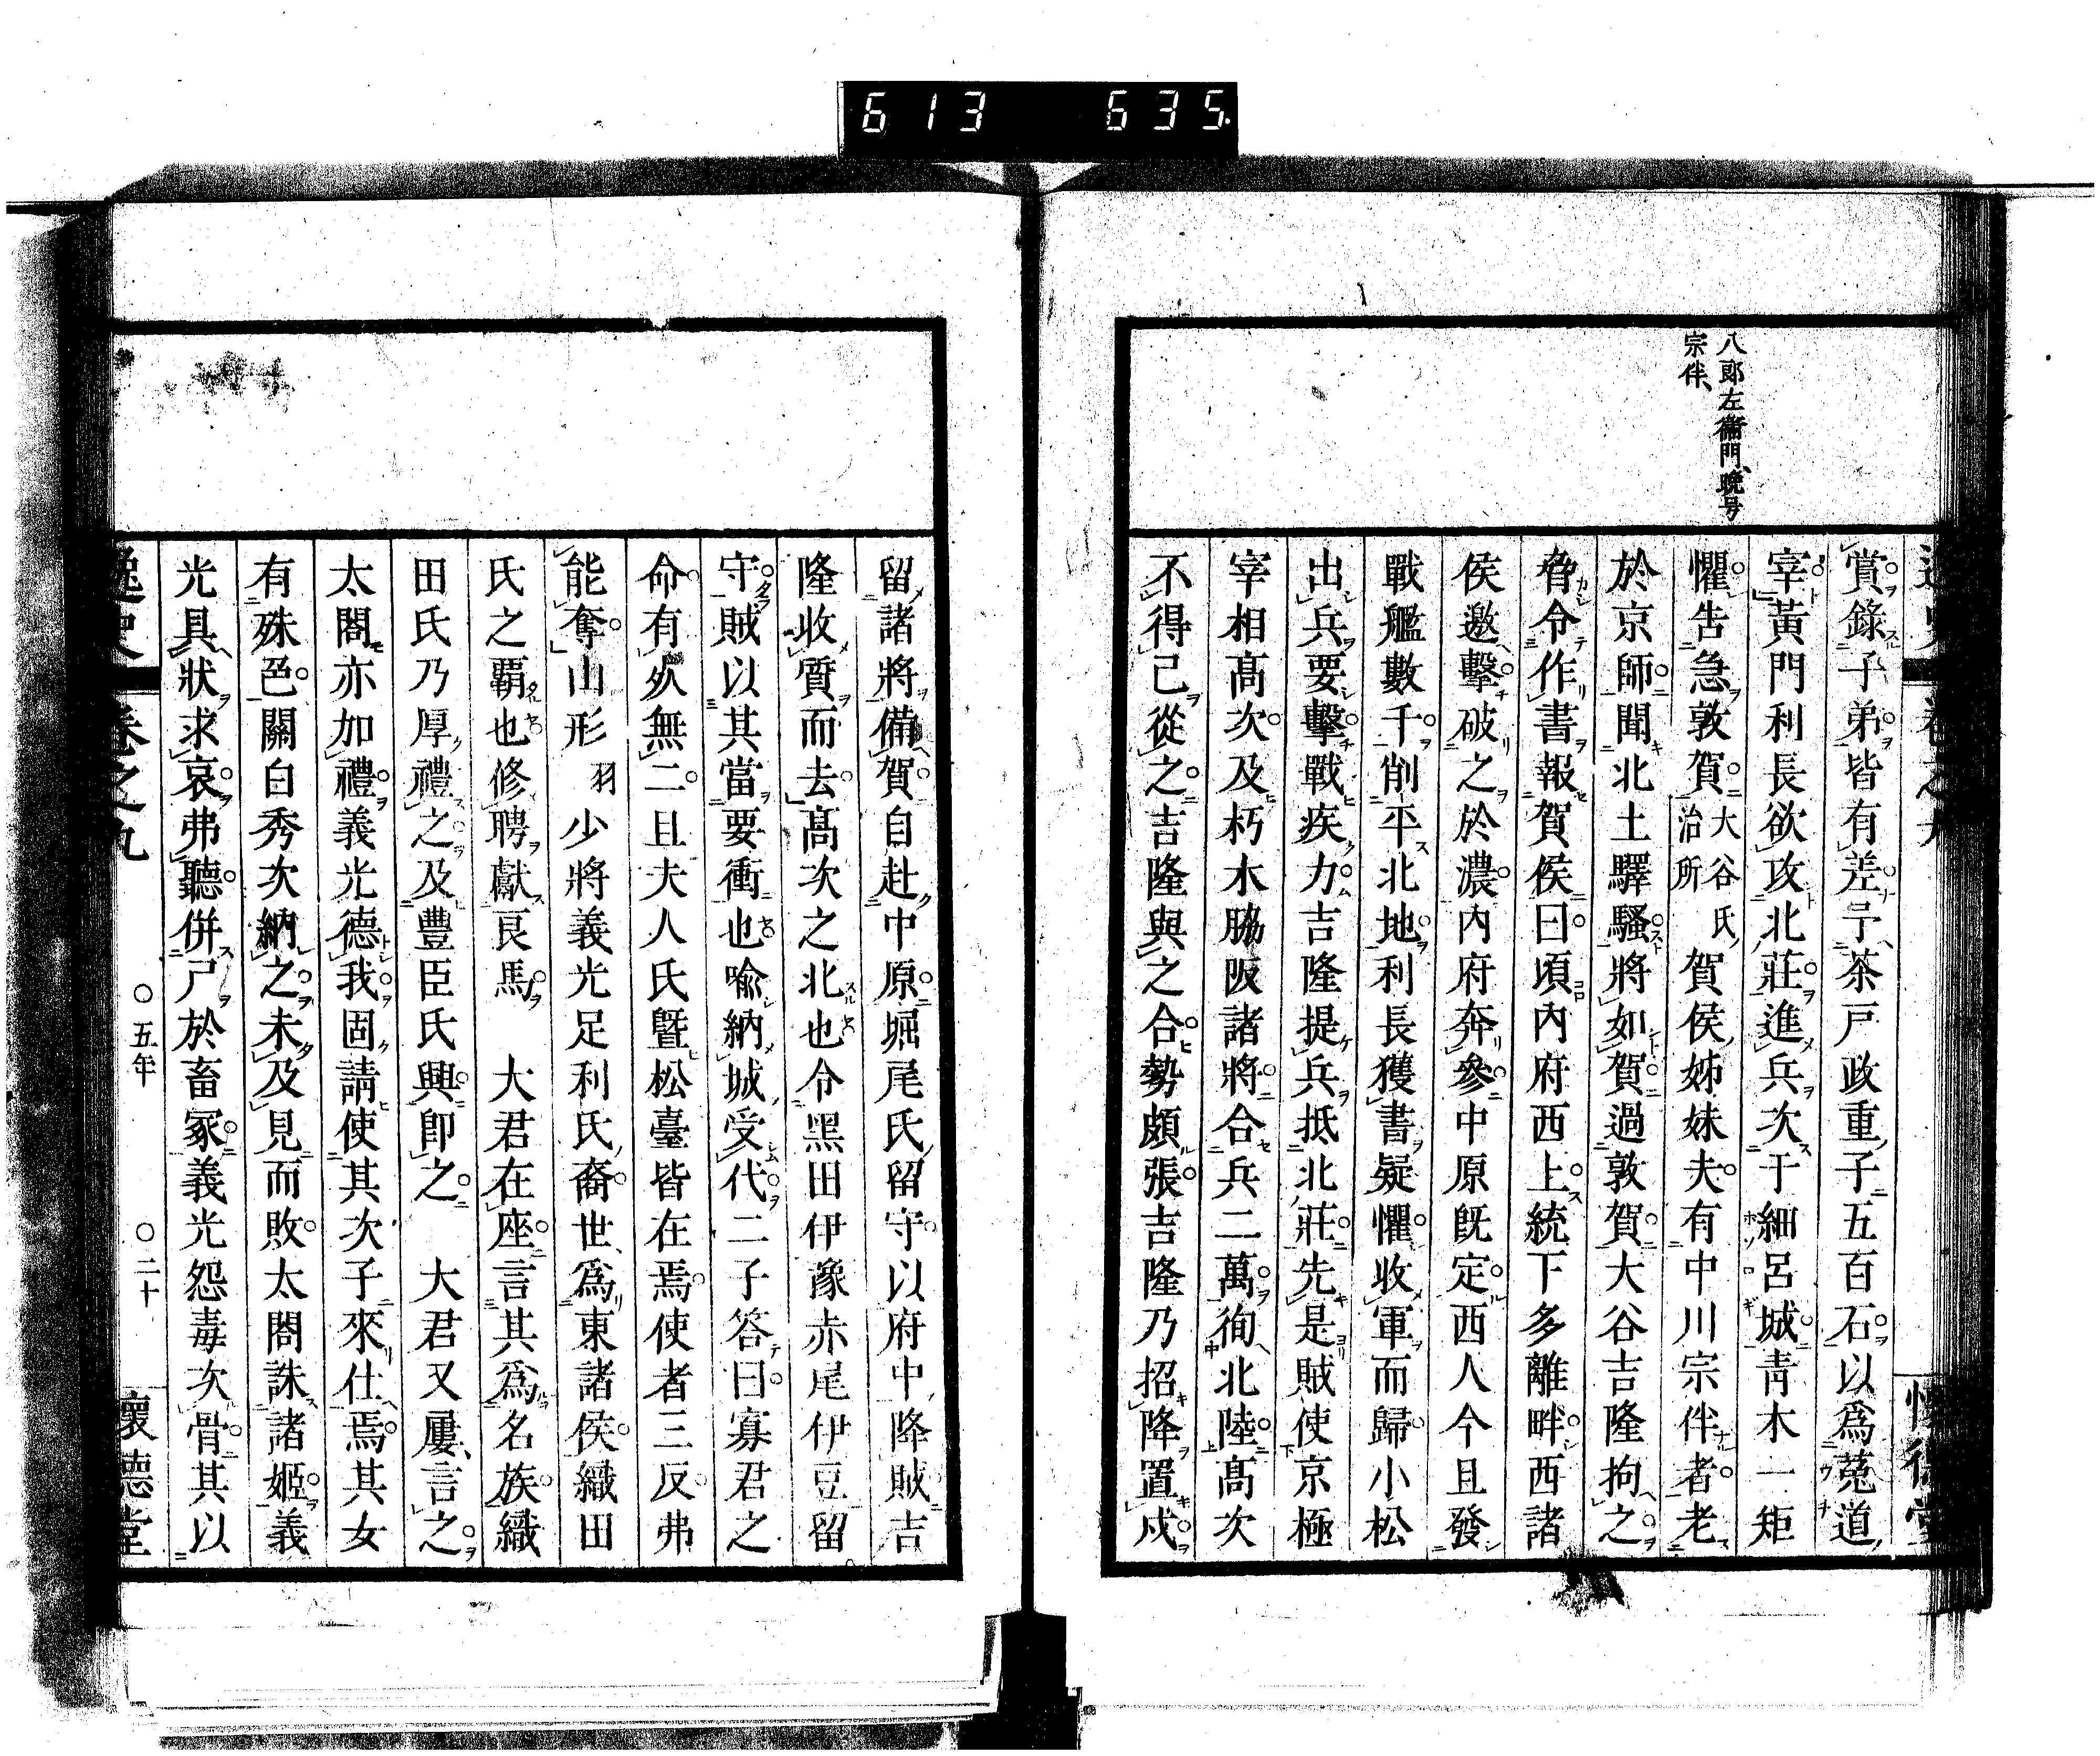 613 635
八郎左衞門、晩号
宗伴、
逸史 卷之九 懷德堂
賞錄子弟皆有差予茶戸政重子五百石以爲菟道
宰黃門利長欲攻北莊進兵次于細呂城靑木一矩
懼吿急敦賀大谷氏治所賀侯姊妹夫有中川宗伴者老
於京師聞北土驛騷將如賀過敦賀大谷吉隆拘之
脅令作書報賀侯曰頃內府西上統下多離畔西諸
侯邀擊破之於濃內府奔參中原旣定西人今且發
戰艦數千削平北地利長獲書疑懼收軍而歸小松
出兵要擊戰疾力吉隆提兵抵北莊先是賊使京極
宰相高次及朽木脇坂諸將合兵二萬徇北陸高次
不得已從之吉隆與之合勢頗張吉隆乃招降置戍
留諸將備賀自赴中原堀尾氏留守以府中降賊吉
隆收質而去高次之北也令黑田伊豫赤尾伊豆留
守賊以其當要衝也喩納城受代二子答曰寡君之
命有死無二且夫人氏曁松臺皆在焉使者三反弗
能奪山形羽少將義光足利氏裔世爲東諸侯織田
氏之覇也修聘獻良馬　大君在座言其爲名族織
田氏乃厚禮之及豐臣氏興卽之　大君又屢言之
太閤亦加禮義光德我固請使其次子來仕焉其女
有殊色關白秀次納之未及見而敗太閤誅諸姬義
光具狀求哀弗聽併尸於畜冢義光怨毒次骨其以
逸史 卷之九 ○五年 ○二十 懷德堂